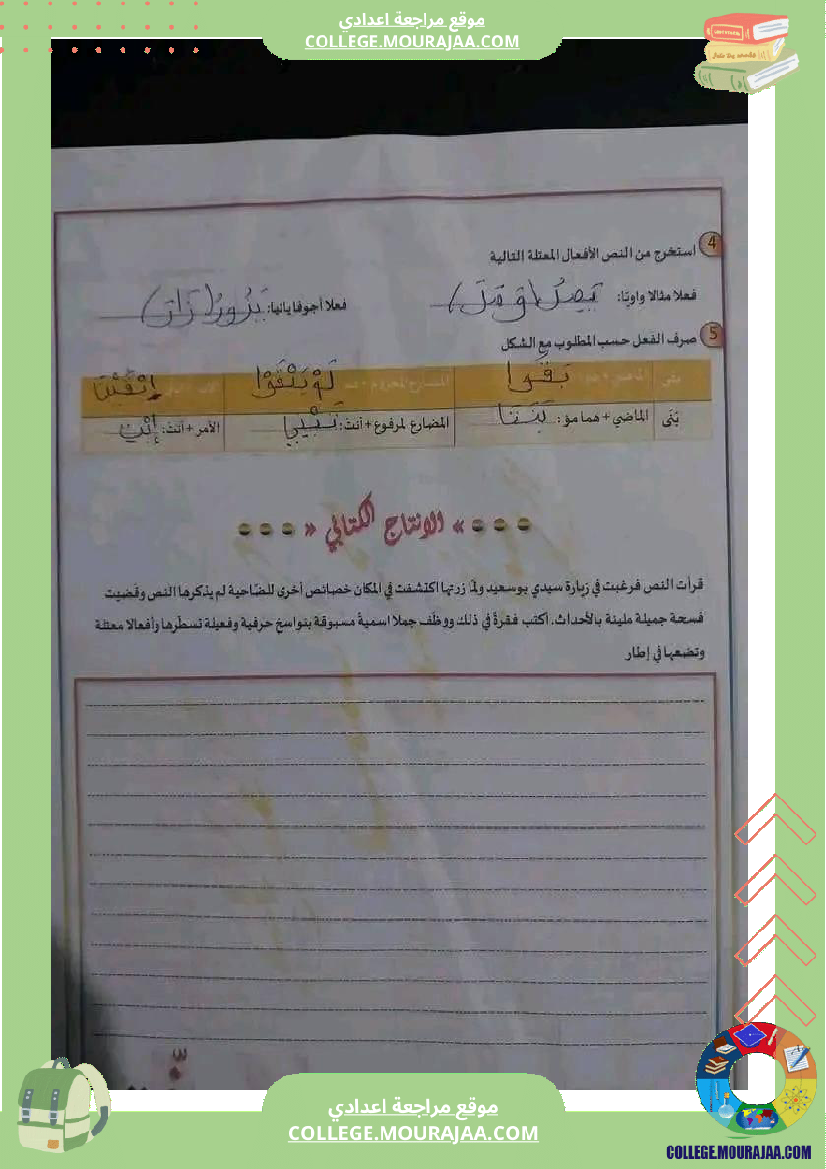 موقع مراجعة اعدادي
COLLEGE.MOURAJAA.COM
4 استخرج من النص الأفعال المعتلة التالية
فعلا مثالا واويّا: يَصِلُ (وَصَلَ) فعلا أجوفا يائيا: يَزُورُ (زَارَ)
5 صرف الفعل حسب المطلوب مع الشكل
بقي الماضي + بَقَوا المضارع المجزوم + لَمْ يَبْقَوْا
بَنَى الماضي + هما مؤ: بَنَتَا المضارع المرفوع + أنتِ: تَبْنِي الأمر + أنتَ: إِبْنِ
» الإنتاج الكتابي «
قرأت النص فرغبت في زيارة سيدي بوسعيد ولمّا زرتها اكتشفت في المكان خصائص أخرى للضّاحية لم يذكرها النص وقضيت
فسحة جميلة مليئة بالأحداث. أكتب فقرةً في ذلك ووظّف جملا اسميةً مسبوقة بنواسخ حرفية وفعيلة تسطّرها وأفعالا معتلة
وتضعها في إطار
موقع مراجعة اعدادي
COLLEGE.MOURAJAA.COM
COLLEGE.MOURAJAA.COM